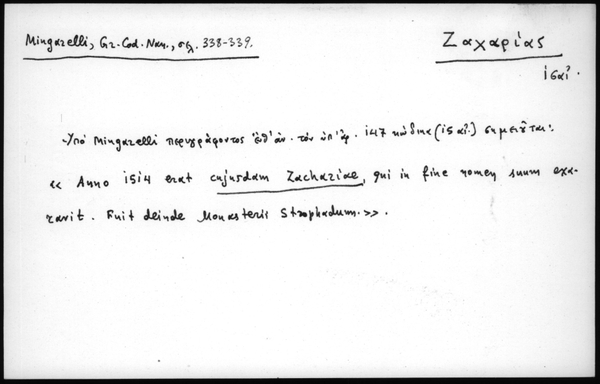 Mingarelli, Gr. Cod. Nan., σελ. 338-339.
Ζαχαρίας
ις αἰ.
Ὑπὸ Mingarelli περιγράφοντος ἐνθ' ἀν. τὸν ὑπ' ἀρ. 147 κώδικα (ις αἰ.) σημειοῦται:
« Anno 1514 erat cujusdam Zachariae, qui in fine nomen suum exa-
ravit. Fuit deinde Monasterii Strophadum.».